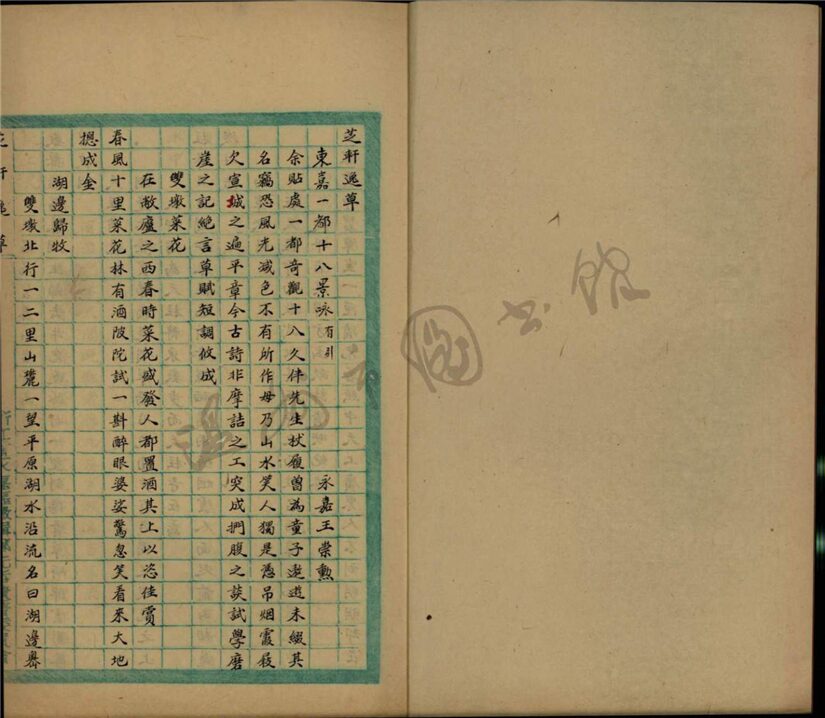 芝軒逸草
東嘉一都十八景咏有引 永嘉王崇勲
余貼處一都奇觀十八久伴先生杖履曾為童子遨遊未綴其
名竊恐風光減色不有所作毋乃山水笑人獨是憑吊烟霞屐
欠宣城之遍平章今古詩非摩詰之工突成捫腹之談試學磨
崖之記絶言草賦短調攸成
雙墩菜花
在敝廬之西春時菜花盛發人都置酒其上以恣佳賞
春風十里菜花林有酒陂陀試一斟醉眼婆娑驚忽笑看來大地
摠成金
湖邊歸牧
雙墩北行一二里山麓一望平原湖水沿流名曰湖邊
芝軒逸草
圖書館